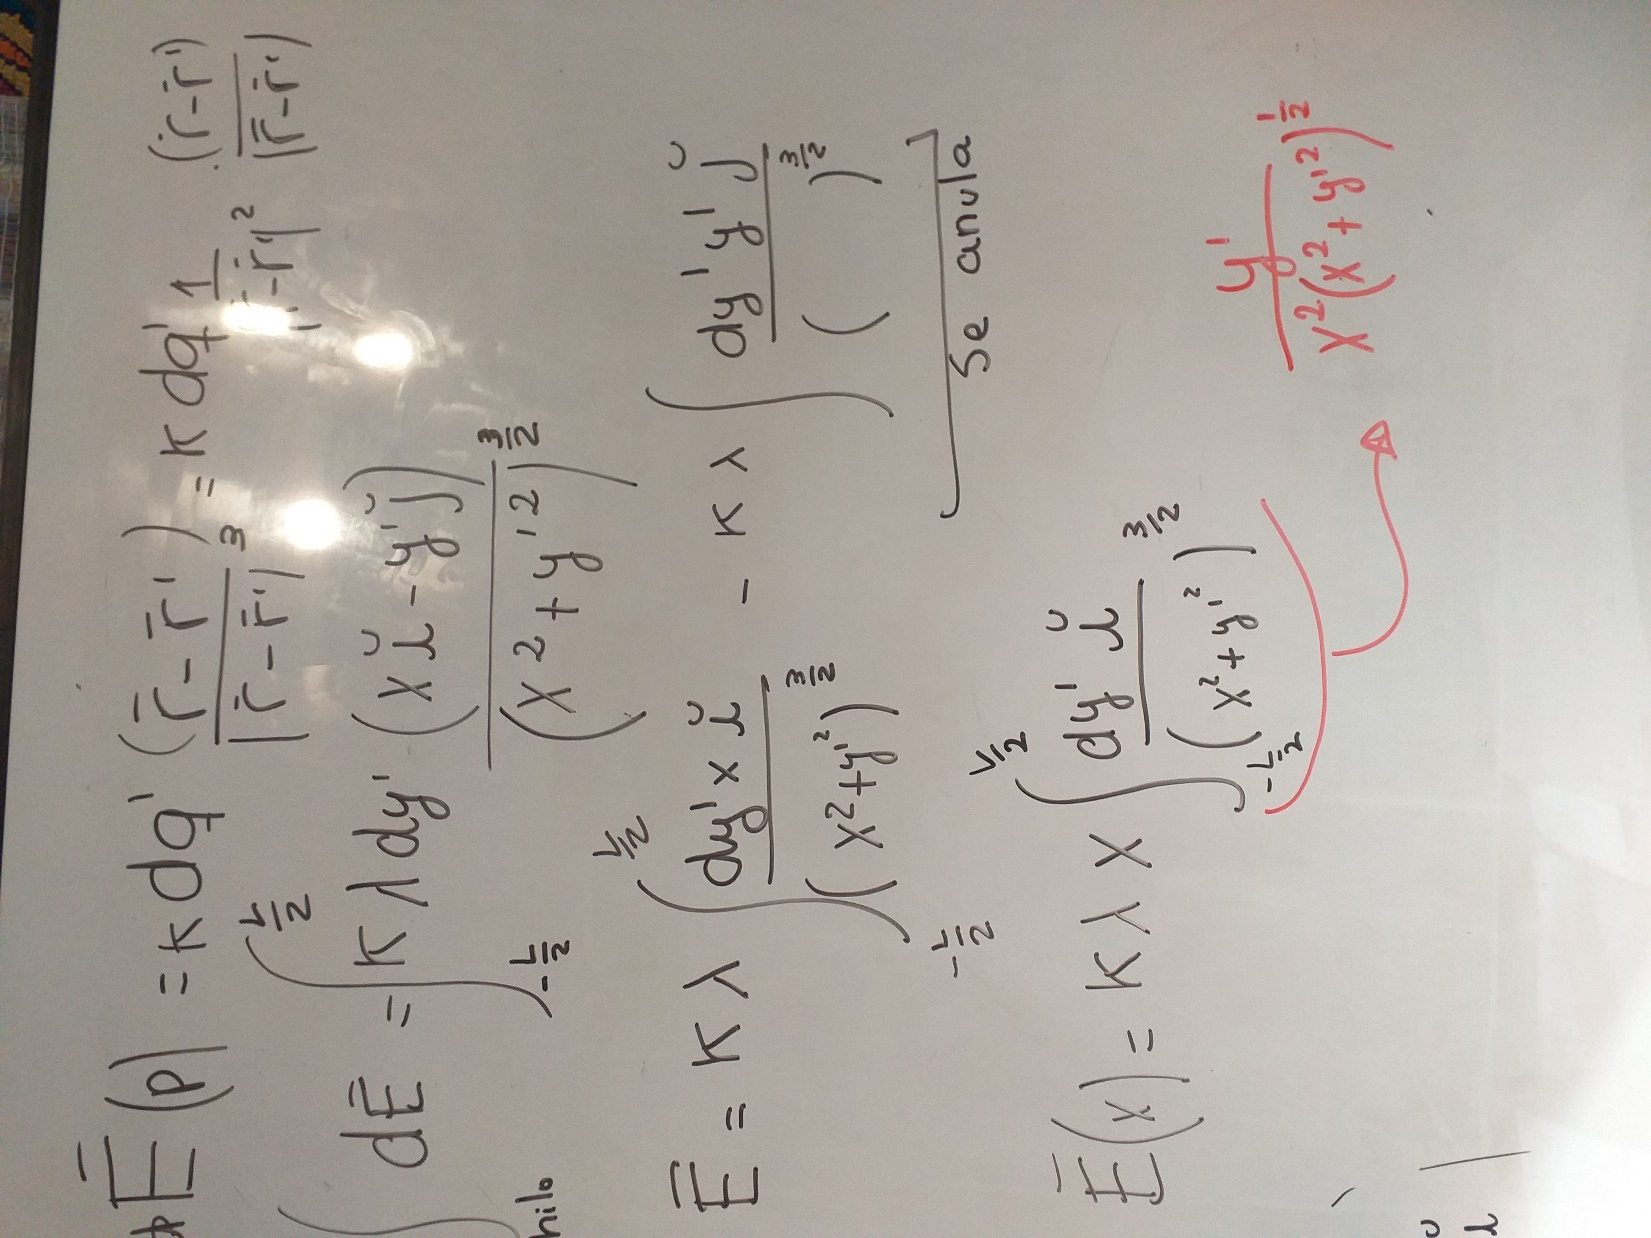 dĒ(p) = K dq' (r̄ - r̄') / |r̄ - r̄'|³ = K dq' 1 / |r̄ - r̄'|² (r̄ - r̄') / |r̄ - r̄'|
∫hilo dĒ = ∫_{-L/2}^{L/2} K λ dy' (x ĭ - y' j̆) / (x² + y'²)^{3/2}
Ē = K λ ∫_{-L/2}^{L/2} dy' x ĭ / (x² + y'²)^{3/2} - K λ ∫ dy' y' j̆ / ( )^{3/2}
Se anula
Ē(x) = K λ x ∫_{-L/2}^{L/2} dy' ĭ / (x² + y'²)^{3/2}
y' / x² (x² + y'²)^{1/2}
ĭ